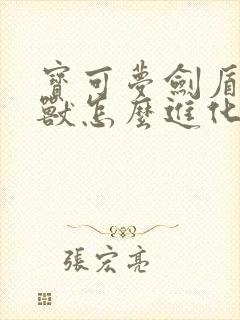 寶可夢劍盾
獸怎麼進化
張宏亮